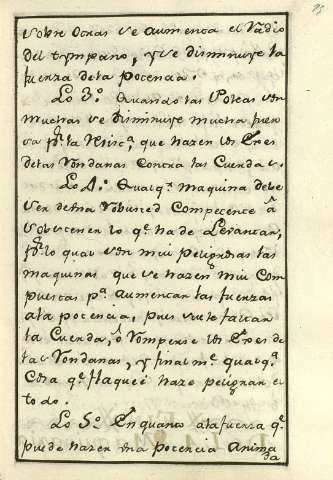 sobre otras se aumenta el radio
del tympano, y se disminuye la
fuerza de la potencia.
Lo 3.º Quando las Poleas son
muchas se disminuye mucha fuer
za p.r la resist.ª que hazen los Exes
de las Rondanas contra las Cuerdas.
Lo 4.º Qualq.ª maquina debe
ser de una robusted competente â
sobstener lo q.e ha de Levantar,
p.r lo qual son mui peligrosas las
maquinas que se hazen mui com
puestas p.ª aumentar las fuerzas
ala potencia, pues suele faltar
la Cuerda, ô romperse los Exes de
las Rondanas, y finalm.e qualq.ª
cosa q.e flaqueé haze peligrar el
todo.
Lo 5.º En quanto ala fuerza q.e
puede hazer una potencia anima
da